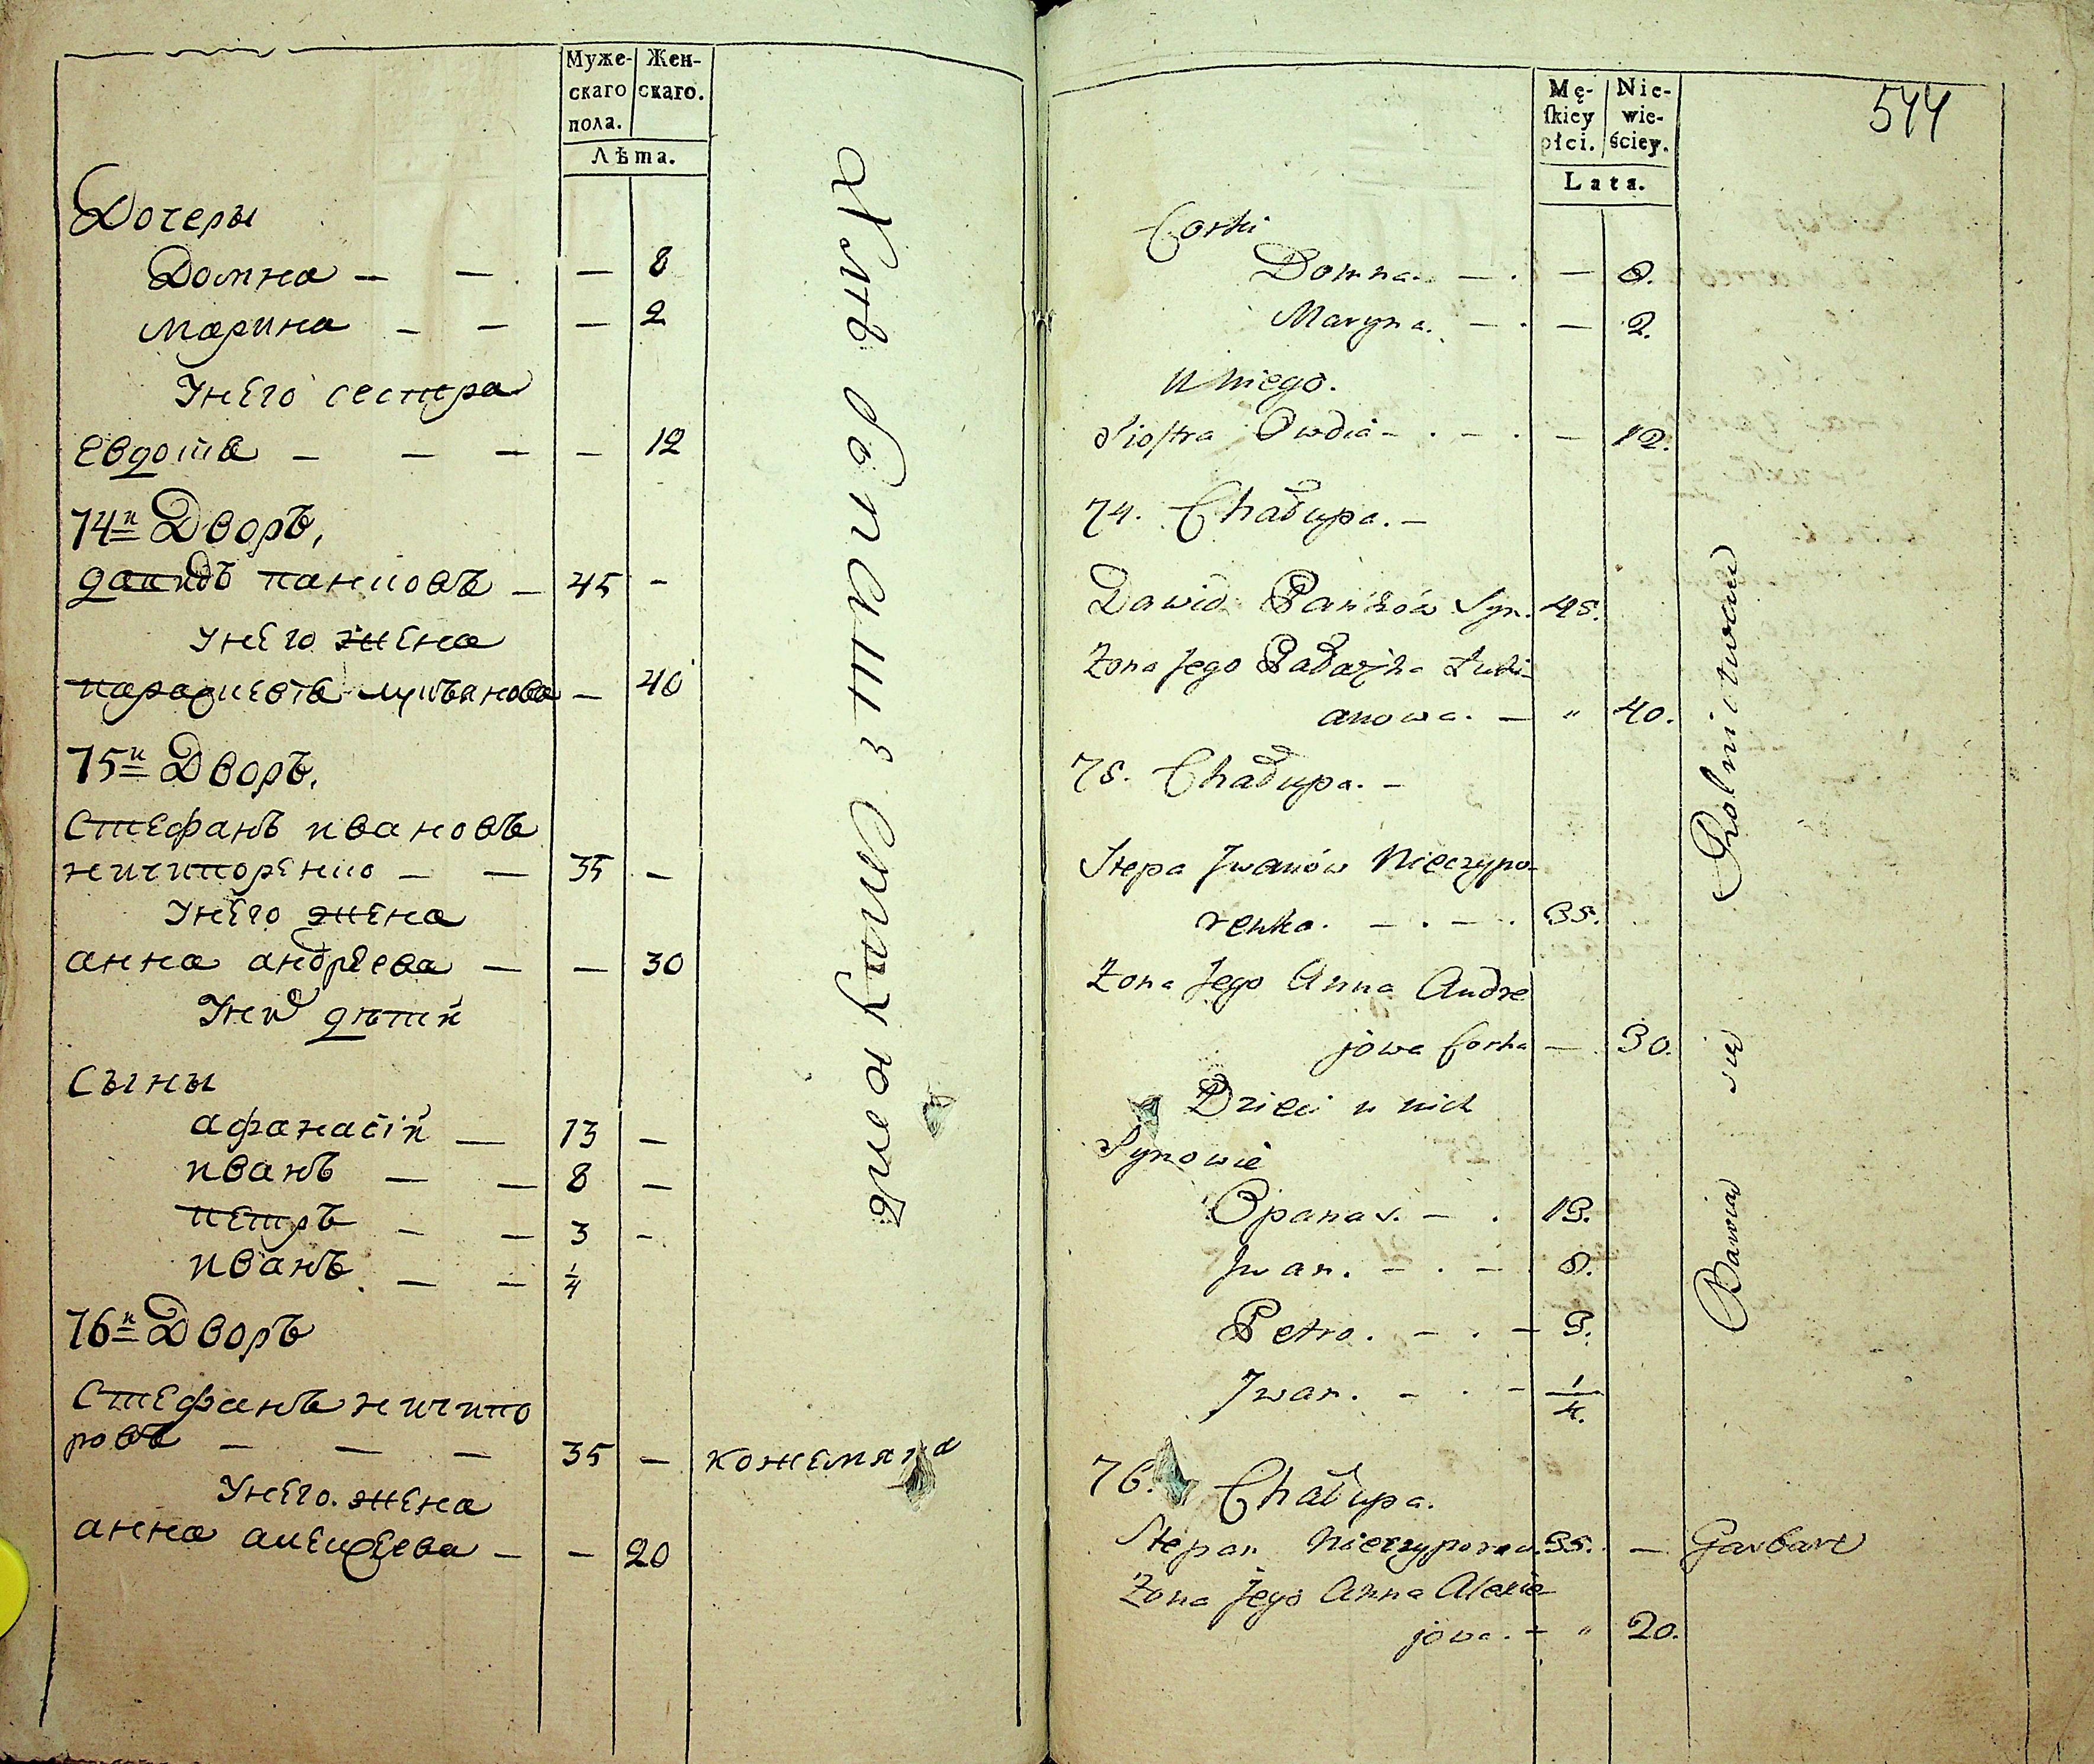 Муже-
скаго
пола.
Жен-
скаго.
Лѣта.
Дочеры
Домна — — — 8
Марина — — — 2
Унего сестра
Евдотя — — — — 12
74й Дворъ,
Давидъ панковъ — 45 —
Унего жена
парасцевія лукъянова — 40
75й Дворъ.
Стефанъ ивановъ
ничипоренко — — 35 —
Унего жена
анна андрѣева — — 30
Уних дѣтей
Сыны
афанасій — 13 —
иванъ — — 8 —
петръ — — 3 —
иванъ — — 1/4
76й Дворъ
Стефанъ ничипо
ровъ — — — 35 — кожемяка
Унего. жена
анна алексѣева — — 20
Хлѣбопашествуютъ
Mę-
skiey
płci.
Nie-
wie-
ściey.
Lata.
544
Corki
Domna. — . — 8.
Maryna. — . — 2.
U niego.
Siostra Owdia — . — . — 12.
74. Chałupa. —
Dawid Pańków Syn. 45.
Zona Jego Pałażka Łuki-
anowa. — " 40.
75. Chałupa. —
Stepa Jwanów Nieczypo-
renko. — . — . 35.
Zona Jego Anna Andre
jowa Corka — 30.
Dzieci u nich
Synowie
Opanas. — . 13.
Jwan. — . — . 8.
Petro. — . — 3.
Jwan. — . — 1/4.
76. Chałupa.
Stepan Nieczyporow. 35. — Garbarz
Zona Jego Anna Alexie-
jowa. — " 20.
Rolnictwem się Bawią